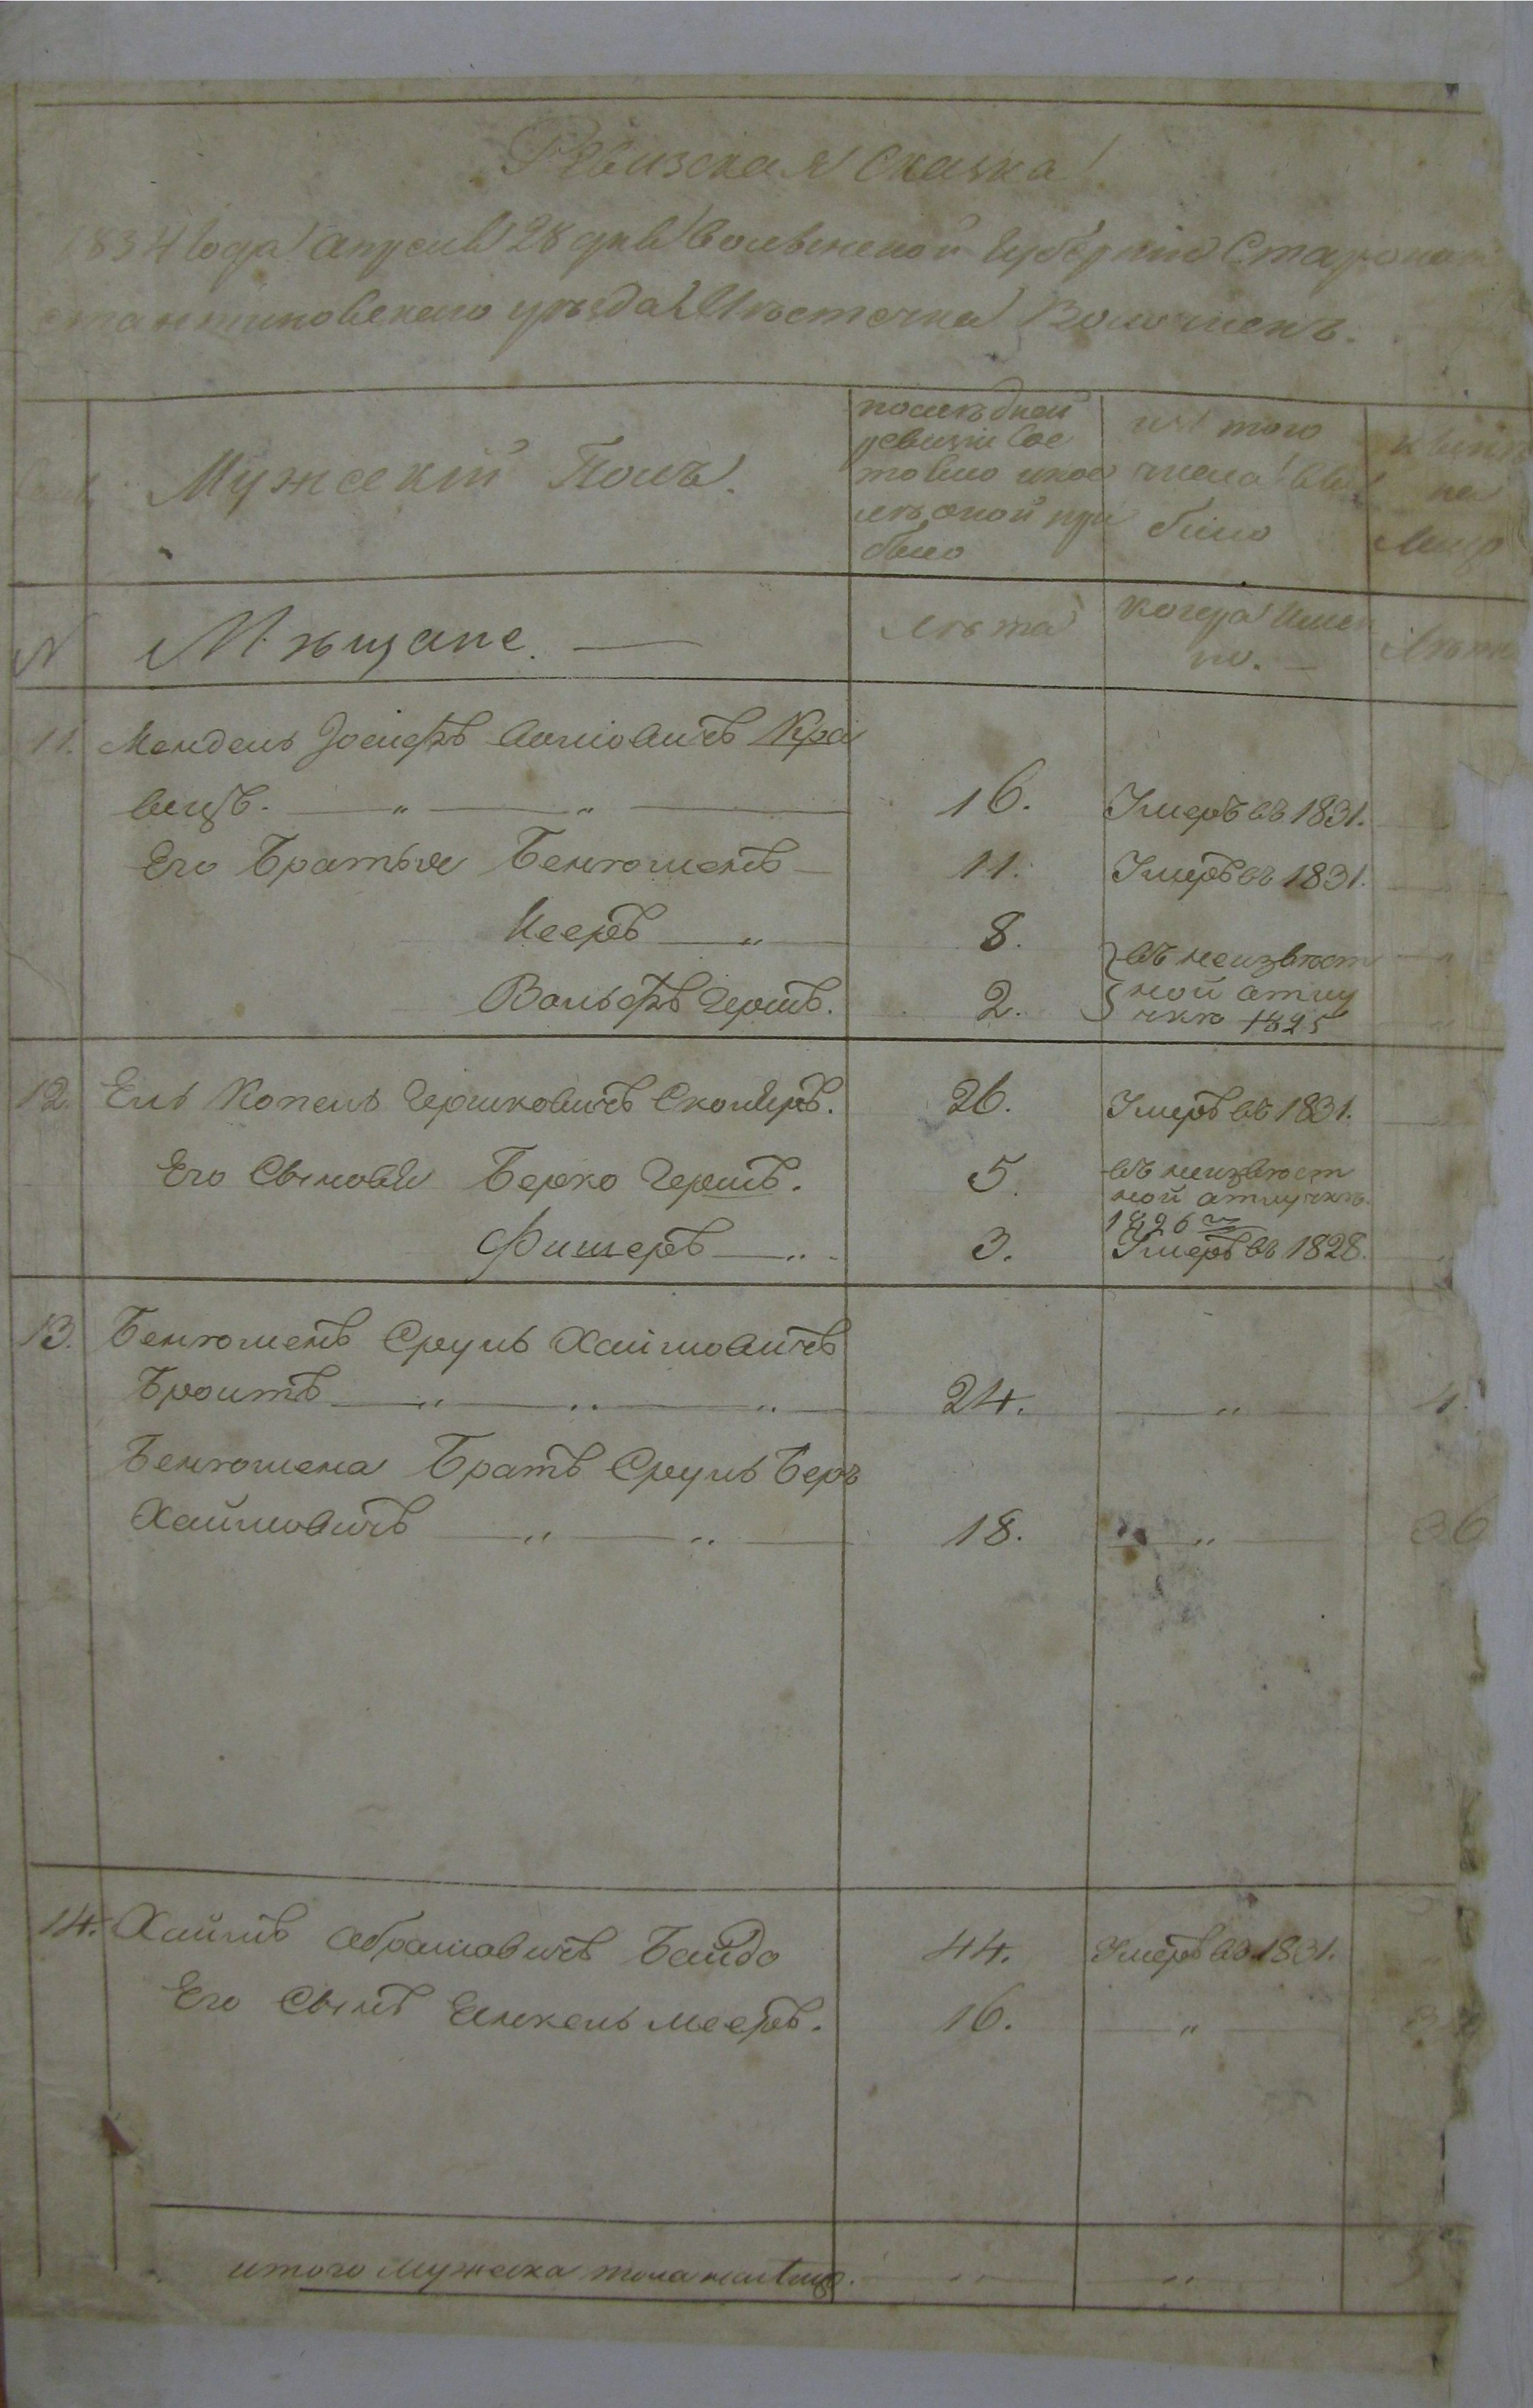 Ревизская Сказка
1834 Года Апреля 28 дня Волынской Губерніи Старокон
стантиновскаго уѣзда Мѣстечка Волочискъ.
Мужескій Полъ.
последней
ревизіи Сос
тояло и пос
лѣ оной при
было
изъ того
числа вы
было
на
Лицо
N
Мѣщане. —
лѣта
когда имен
но. —
Лѣта
11. Мендель Іосифъ Кра
вецъ. — " — " — 16. Умеръ въ 1831.
Его Братья Бенюменъ — 11. Умеръ въ 1831.
Мееръ — " — 8. въ неизвѣст
Вольфъ Гершъ. 2. ной отлу
чкѣ 1825
12. Ель Копель Гершковичъ 26. Умеръ въ 1831.
Его Сыновья Берко Гершъ. 5. въ неизвѣст
ной отлучкѣ.
1826 го
Фишеръ — " — 3. Умеръ въ 1828.
13. Бенюменъ Сруль Хаимовичъ
Броитъ — " — " — " — 24. — " —
Бенюмена Братъ Сруль Беръ
Хаимовичъ — " — " — 18. " — " — 36
14. Хаимъ Абрамовичъ Байдо 44. Умеръ въ 1831.
Его Сынъ Енкель Мееръ. 16. — " —
итого мужеска пола налицо. — " — — " —